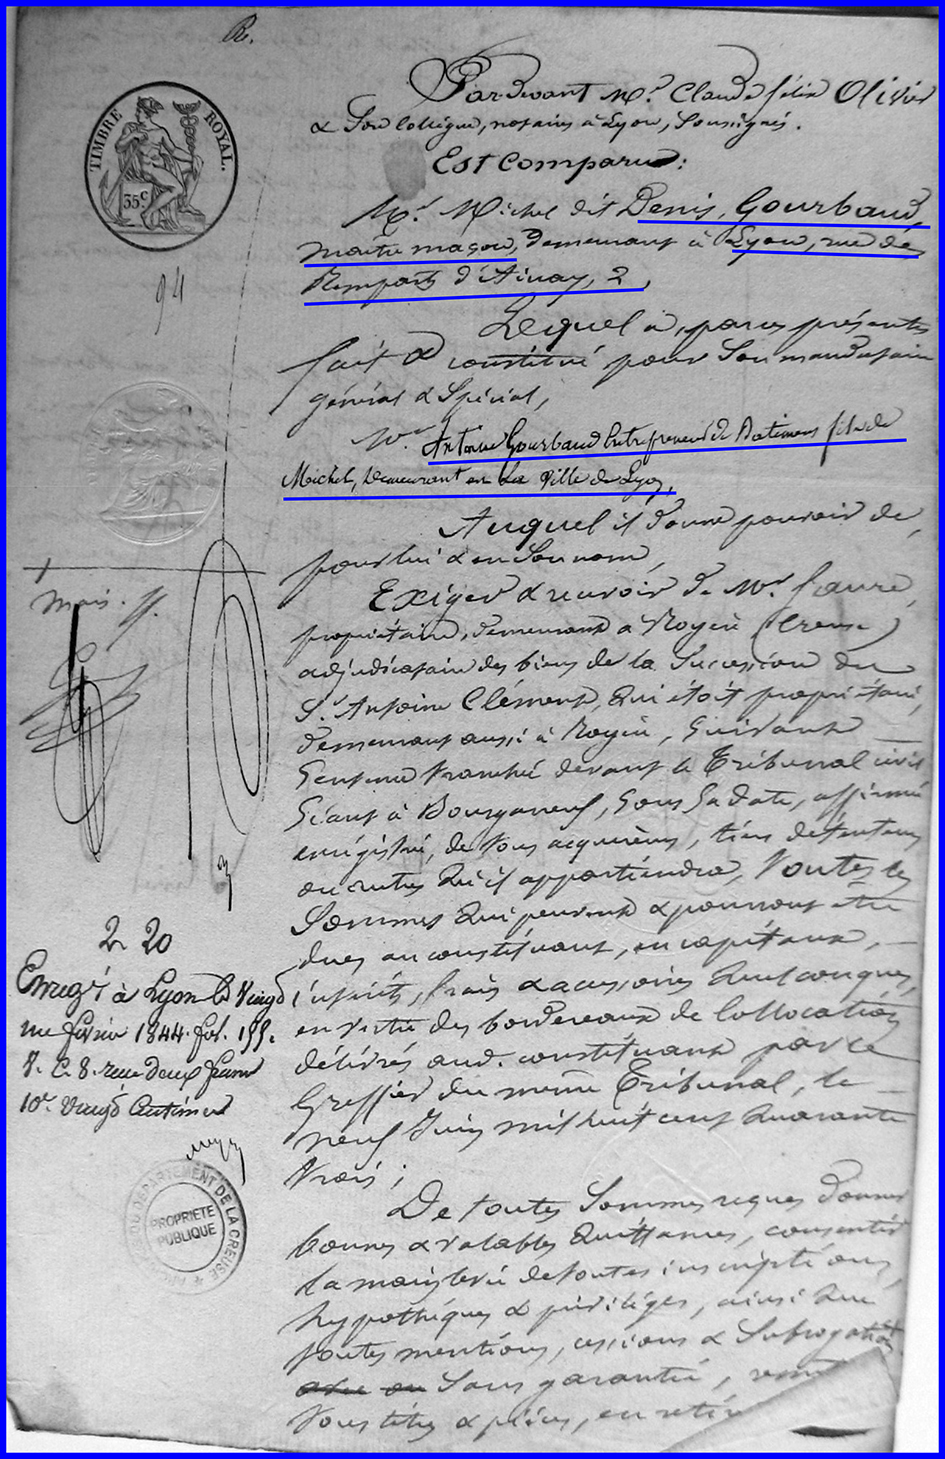 R.
TIMBRE ROYAL.
35c
94
Pardevant Me. Claude félix Olivier
& Son Collègue, notaires à Lyon, Soussignés.
Est Comparu:
Mr. Michel dit Denis, Gourbaud,
maitre maçon, demeurant à Lyon, rue des
Remparts d'Ainay, 2,
Lequel a, par ces présentes
fait & constitué pour Son mandataire
général & Spécial,
Mr. Antoine Gourbaud Entrepreneur de Batimens fils de
Michel, demeurant en la Ville de Lyon,
Auquel il donne pouvoir de,
pour lui & en Son nom,
Exiger & recevoir de Mr. faure,
propriétaire, demeurant à Royère (Creuse)
adjudicataire des biens de la Succession du
S. Antoine Clément, qui étoit propriétaire,
demeurant aussi à Royère, Suivant
Sentence tranchée devant le Tribunal civil
Séant à Bourganeuf, Sous Sa date,
enrégistré, de tous acquéreurs, tiers détenteurs
ou autres qu'il appartiendra, toutes les
Sommes qui peuvent & pourront être
dues au constituant, en capitaux,
intérêts, frais & accessoires quelconques,
en vertu des bordereaux de collocation
délivrés aud. constituant par le
Greffier du même Tribunal, le
neuf Juin mil huit cent quarante
trois;
De toutes Sommes reçues donner
bonnes & valables quittances, consentir
la mainlevée de toutes inscriptions
hypothèques & privilèges, ainsi que
toutes mentions, cessions & Subrogations
Sans garantie,
tous titres & pièces, en retirer
2 20
Enregé à Lyon le Vingt
un février 1844. fol. 199.
V. C. 8. reçu deux francs
10e. Vingt Centimes
PROPRIETE
PUBLIQUE
DU DEPARTEMENT DE LA CREUSE